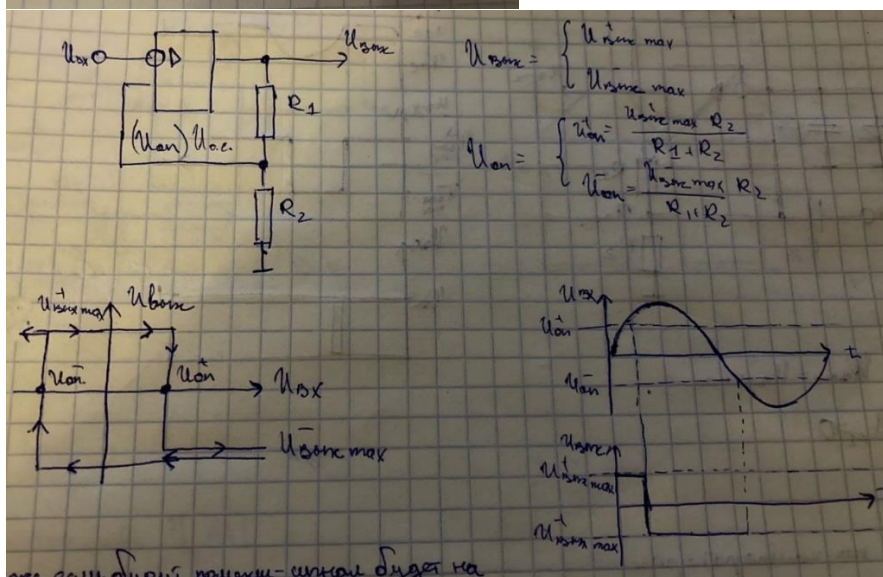 Uвх
▷
Uвых
R1
(Uоп) Uо.с.
R2
Uвых = { U⁺вых max
U⁻вых max
Uоп = { U⁺оп = U⁺вых max R2 / R1 + R2
U⁻оп = U⁻вых max / R1 + R2 R2
U⁺вых max
Uвых
U⁻оп
U⁺оп
Uвх
U⁻вых max
Uвх
U⁺оп
t
U⁻оп
Uвых
U⁺вых max
U⁻вых max
будет помехи - сигнал будет на